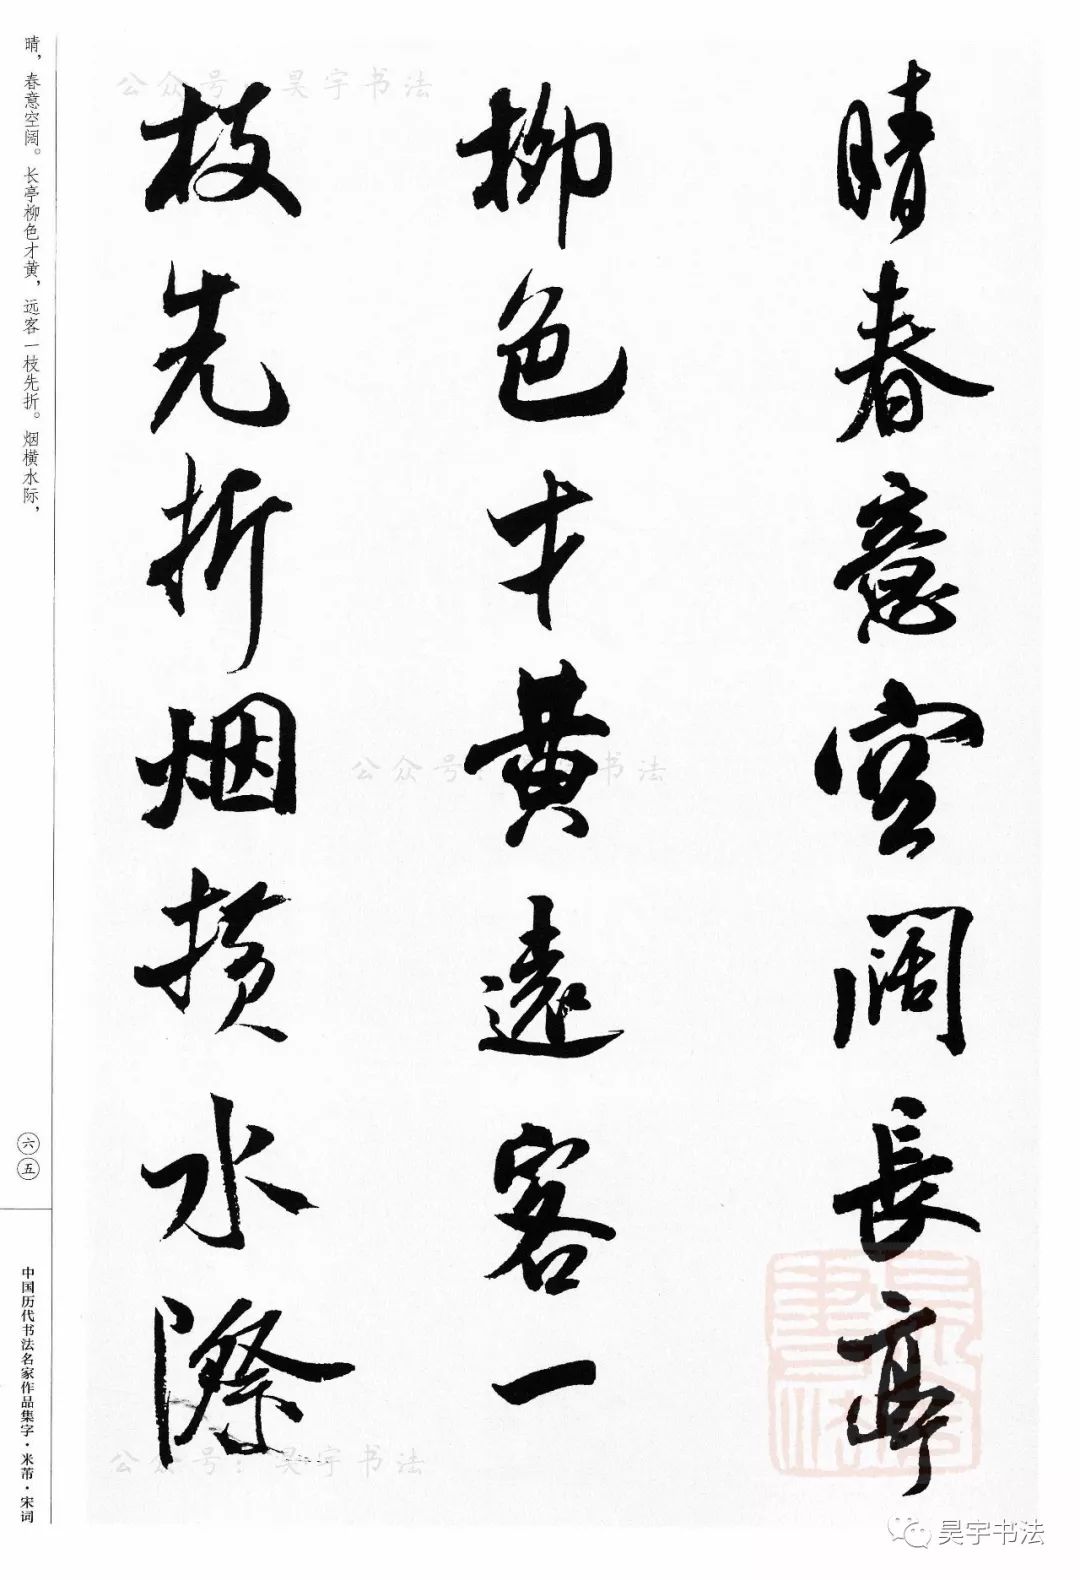 晴春意空阔長亭
柳色才黄遠客一
枝先折烟横水際
晴，春意空阔。长亭柳色才黄，远客一枝先折。烟横水际，
六五
中国历代书法名家作品集字·米芾·宋词
公众号：昊宇书法
公众号：书法
公众号：昊宇书法
昊宇书法